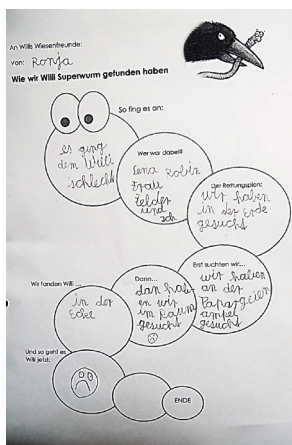 An Willis Wiesenfreunde:
Von: Ronja
Wie wir Willi Superwurm gefunden haben
So fing es an:
es ging
dem Willi
schlecht
Wer war dabei?
Lena Robin
Frau
Felder
und
ich
Der Rettungsplan:
wir haben
in der Erde
gesucht
Erst suchten wir...
wir haben
an der
Papargeien
ampel
gesucht
Dann...
dan hab
en wir
im Raum
gesucht
Wir fanden Willi ...
in der
Ecke
Und so geht es
Willi jetzt:
ENDE